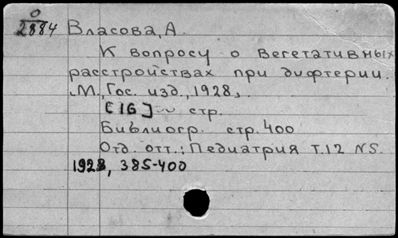 О
2884 Власова, А.
К вопросу о вегетативных
расстройствах при дифтерии.
М., Гос. изд., 1928.
[16] стр.
Библиогр. стр. 400
Отд. отт.: Педиатрия Т.12 N5.
1928, 385-400